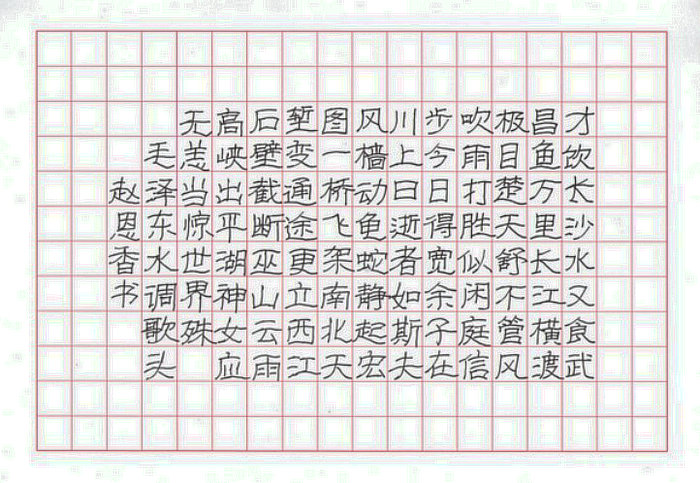 才饮长沙水又食武
昌鱼万里长江横渡
极目楚天舒不管风
吹雨打胜似闲庭信
步今日得宽余子在
川上曰逝者如斯夫
风樯动龟蛇静起宏
图一桥飞架南北天
堑变通途更立西江
石壁截断巫山云雨
高峡出平湖神女应
无恙当惊世界殊
毛泽东水调歌头
赵恩香书